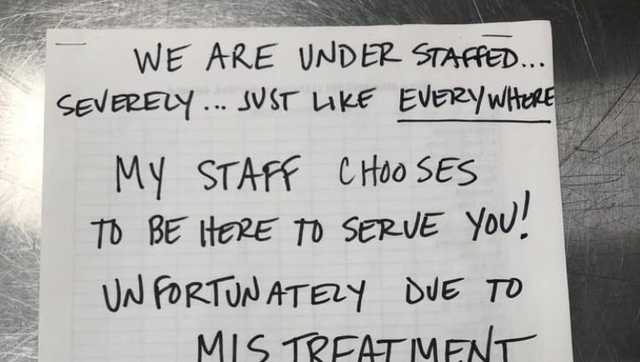 WE ARE UNDER STAFFED...
SEVERELY... JUST LIKE EVERYWHERE
MY STAFF CHOOSES
TO BE HERE TO SERVE YOU!
UNFORTUNATELY DUE TO
MISTREATMENT